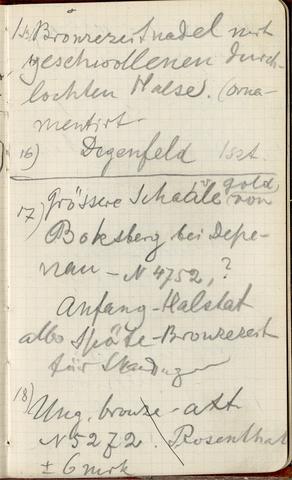 15) Bronzezeitnadel mit
geschwollenen durch-
lochten Halse. (orna-
mentirt.
16) Degenfeld
17) Grössere Schaale v. gold, von
Boksberg bei Depe-
nau - N 4752, ?
Anfang - Halstat
also Späte - Bronzezeit
für
18) Ung. bronze - axt
N 5272. Rosenthal
± 6 mrk